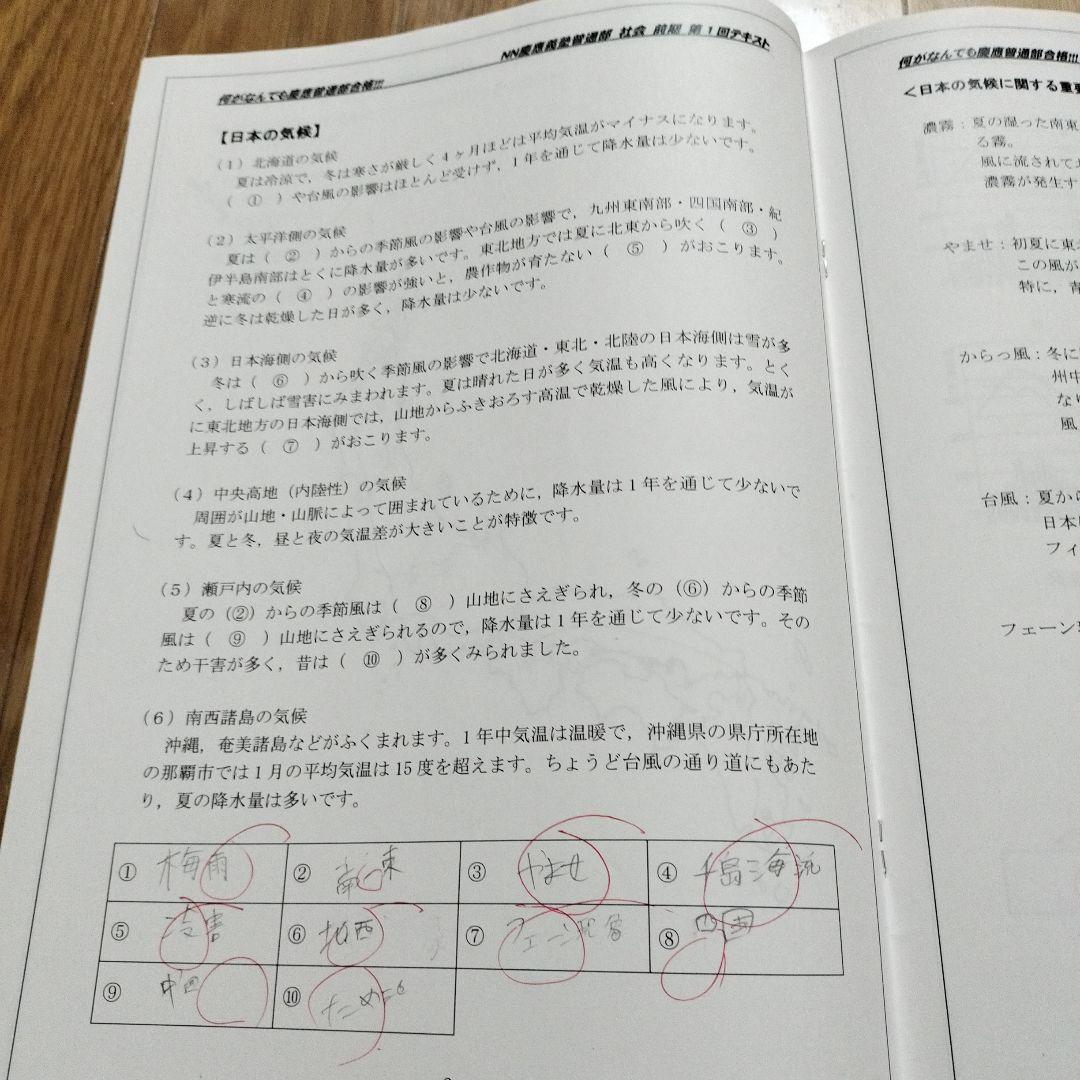 NN慶應義塾普通部 社会 前期 第1回テキスト
何がなんでも慶應普通部合格!!!
【日本の気候】
(1) 北海道の気候
夏は冷涼で，冬は寒さが厳しく4ヶ月ほどは平均気温がマイナスになります。
( ① )や台風の影響はほとんど受けず，1年を通じて降水量は少ないです。
(2) 太平洋側の気候
夏は( ② )からの季節風の影響や台風の影響で，九州東南部・四国南部・紀
伊半島南部はとくに降水量が多いです。東北地方では夏に北東から吹く( ③ )
と寒流の( ④ )の影響が強いと，農作物が育たない( ⑤ )がおこります。
逆に冬は乾燥した日が多く，降水量は少ないです。
(3) 日本海側の気候
冬は( ⑥ )から吹く季節風の影響で北海道・東北・北陸の日本海側は雪が多
く，しばしば雪害にみまわれます。夏は晴れた日が多く気温も高くなります。とく
に東北地方の日本海側では，山地からふきおろす高温で乾燥した風により，気温が
上昇する( ⑦ )がおこります。
(4) 中央高地（内陸性）の気候
周囲が山地・山脈によって囲まれているために，降水量は1年を通じて少ないで
す。夏と冬，昼と夜の気温差が大きいことが特徴です。
(5) 瀬戸内の気候
夏の(②)からの季節風は( ⑧ )山地にさえぎられ，冬の(⑥)からの季節
風は( ⑨ )山地にさえぎられるので，降水量は1年を通じて少ないです。その
ため干害が多く，昔は( ⑩ )が多くみられました。
(6) 南西諸島の気候
沖縄，奄美諸島などがふくまれます。1年中気温は温暖で，沖縄県の県庁所在地
の那覇市では1月の平均気温は15度を超えます。ちょうど台風の通り道にもあた
り，夏の降水量は多いです。
① 梅雨 ② 南東 ③ やませ ④ 千島海流
⑤ 冷害 ⑥ 北西 ⑦ フェーン現象 ⑧ 四国
⑨ 中国 ⑩ ため池
何がなんでも慶應普通部合格!!!
＜日本の気候に関する重要
濃霧：夏の湿った南東
る霧。
風に流されて
濃霧が発生す
やませ：初夏に東
この風が
特に，青
からっ風：冬に
州中
なり
風
台風：夏から
日本
フィ
フェーン